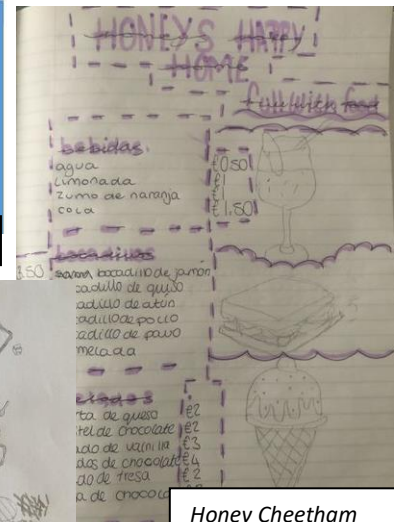 HONEYS HAPPY
HOME
full with food
bebidas.
agua €0.50
limonada €1
zumo de naranja €1
cola €1.50
bocadillos
3.50 bocadillo de jamón
cadillo de queso
cadillo de atún
cadillo de pollo
cadillo de pavo
melada
elados
ta de queso €2
tel de chocolate €2
ado de vainilla €3
dos de chocolate €4
do de fresa €2
a de chocola
Honey Cheetham